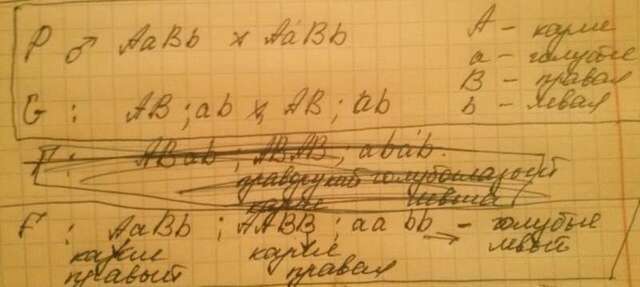 P ♂ AaBb × AaBb
A - карие
a - голубые
B - правая
b - левая
G : AB ; ab × AB ; ab
F : ABab ; ABAB ; abab.
праворукий голубоглазый
карие левша
F : AaBb ; AABB ; aa bb - голубые
карие карие левый
правый правая